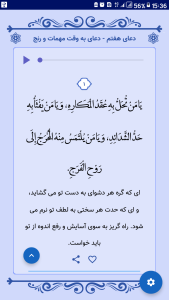 56% 15:36
دعای هفتم - دعای به وقت مهمات و رنج
۱
يَا مَنْ تُحَلُّ بِهِ عُقَدُ الْمَكَارِهِ، وَ يَا مَنْ يُفْثَأُ بِهِ
حَدُّ الشَّدَائِدِ، وَ يَا مَنْ يُلْتَمَسُ مِنْهُ الْمَخْرَجُ إِلَى
رَوْحِ الْفَرَجِ.
ای که گره هر دشواى به دست تو می گشاید،
و ای که حدت هر سختی به لطف تو نرم می
شود. راه گریز به سوی آسایش و رفع اندوه از تو
باید خواست.